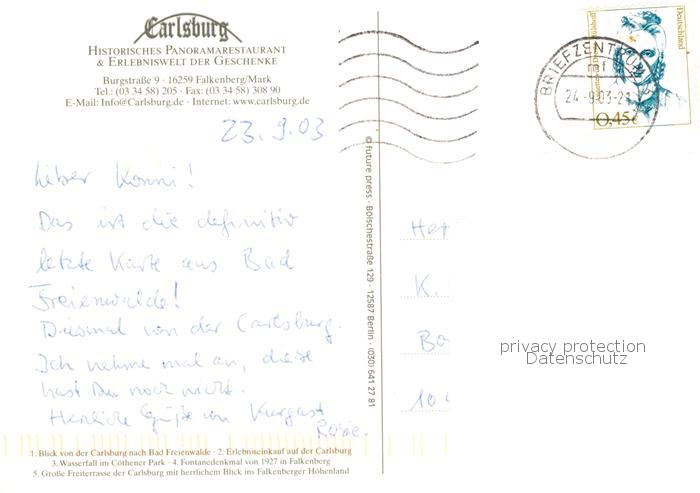 Carlsburg
HISTORISCHES PANORAMARESTAURANT
& ERLEBNISWELT DER GESCHENKE
Burgstraße 9 · 16259 Falkenberg/Mark
Tel.: (03 34 58) 205 · Fax: (03 34 58) 308 90
E-Mail: Info@Carlsburg.de · Internet: www.carlsburg.de
23.9.03
Lieber Konni!
Das ist die definitiv
letzte Karte aus Bad
Freienwalde!
Diesmal von der Carlsburg.
Ich nehme mal an, diese
hast Du noch nicht.
Herzliche Grüße von Kurgast
1. Blick von der Carlsburg nach Bad Freienwalde · 2. Erlebniseinkauf auf der Carlsburg
3. Wasserfall im Cöthener Park · 4. Fontanedenkmal von 1927 in Falkenberg
5. Große Freiterrasse der Carlsburg mit herrlichem Blick ins Falkenberger Höhenland
© future press · Bölschestraße 129 · 12587 Berlin · (030) 641 27 81
BRIEFZENTRUM
24.-9.03-21
Deutschland
0,45€
K.
Bo
10
privacy protection
Datenschutz